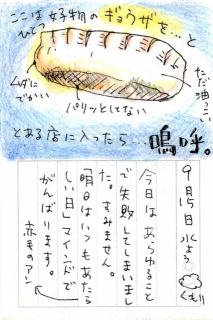 ここは好物の
ひとつ
ギョウザを…と
ムダに
でかい
パリッとしてない
ただ油っこい
とある店に入ったら…嗚呼。
9月15日 水よう
くもり
今日はあらゆること
で失敗してしまいまし
た。すみません。
「明日はいつもあたら
しい日」マインドで
がんばります。
赤毛のアン